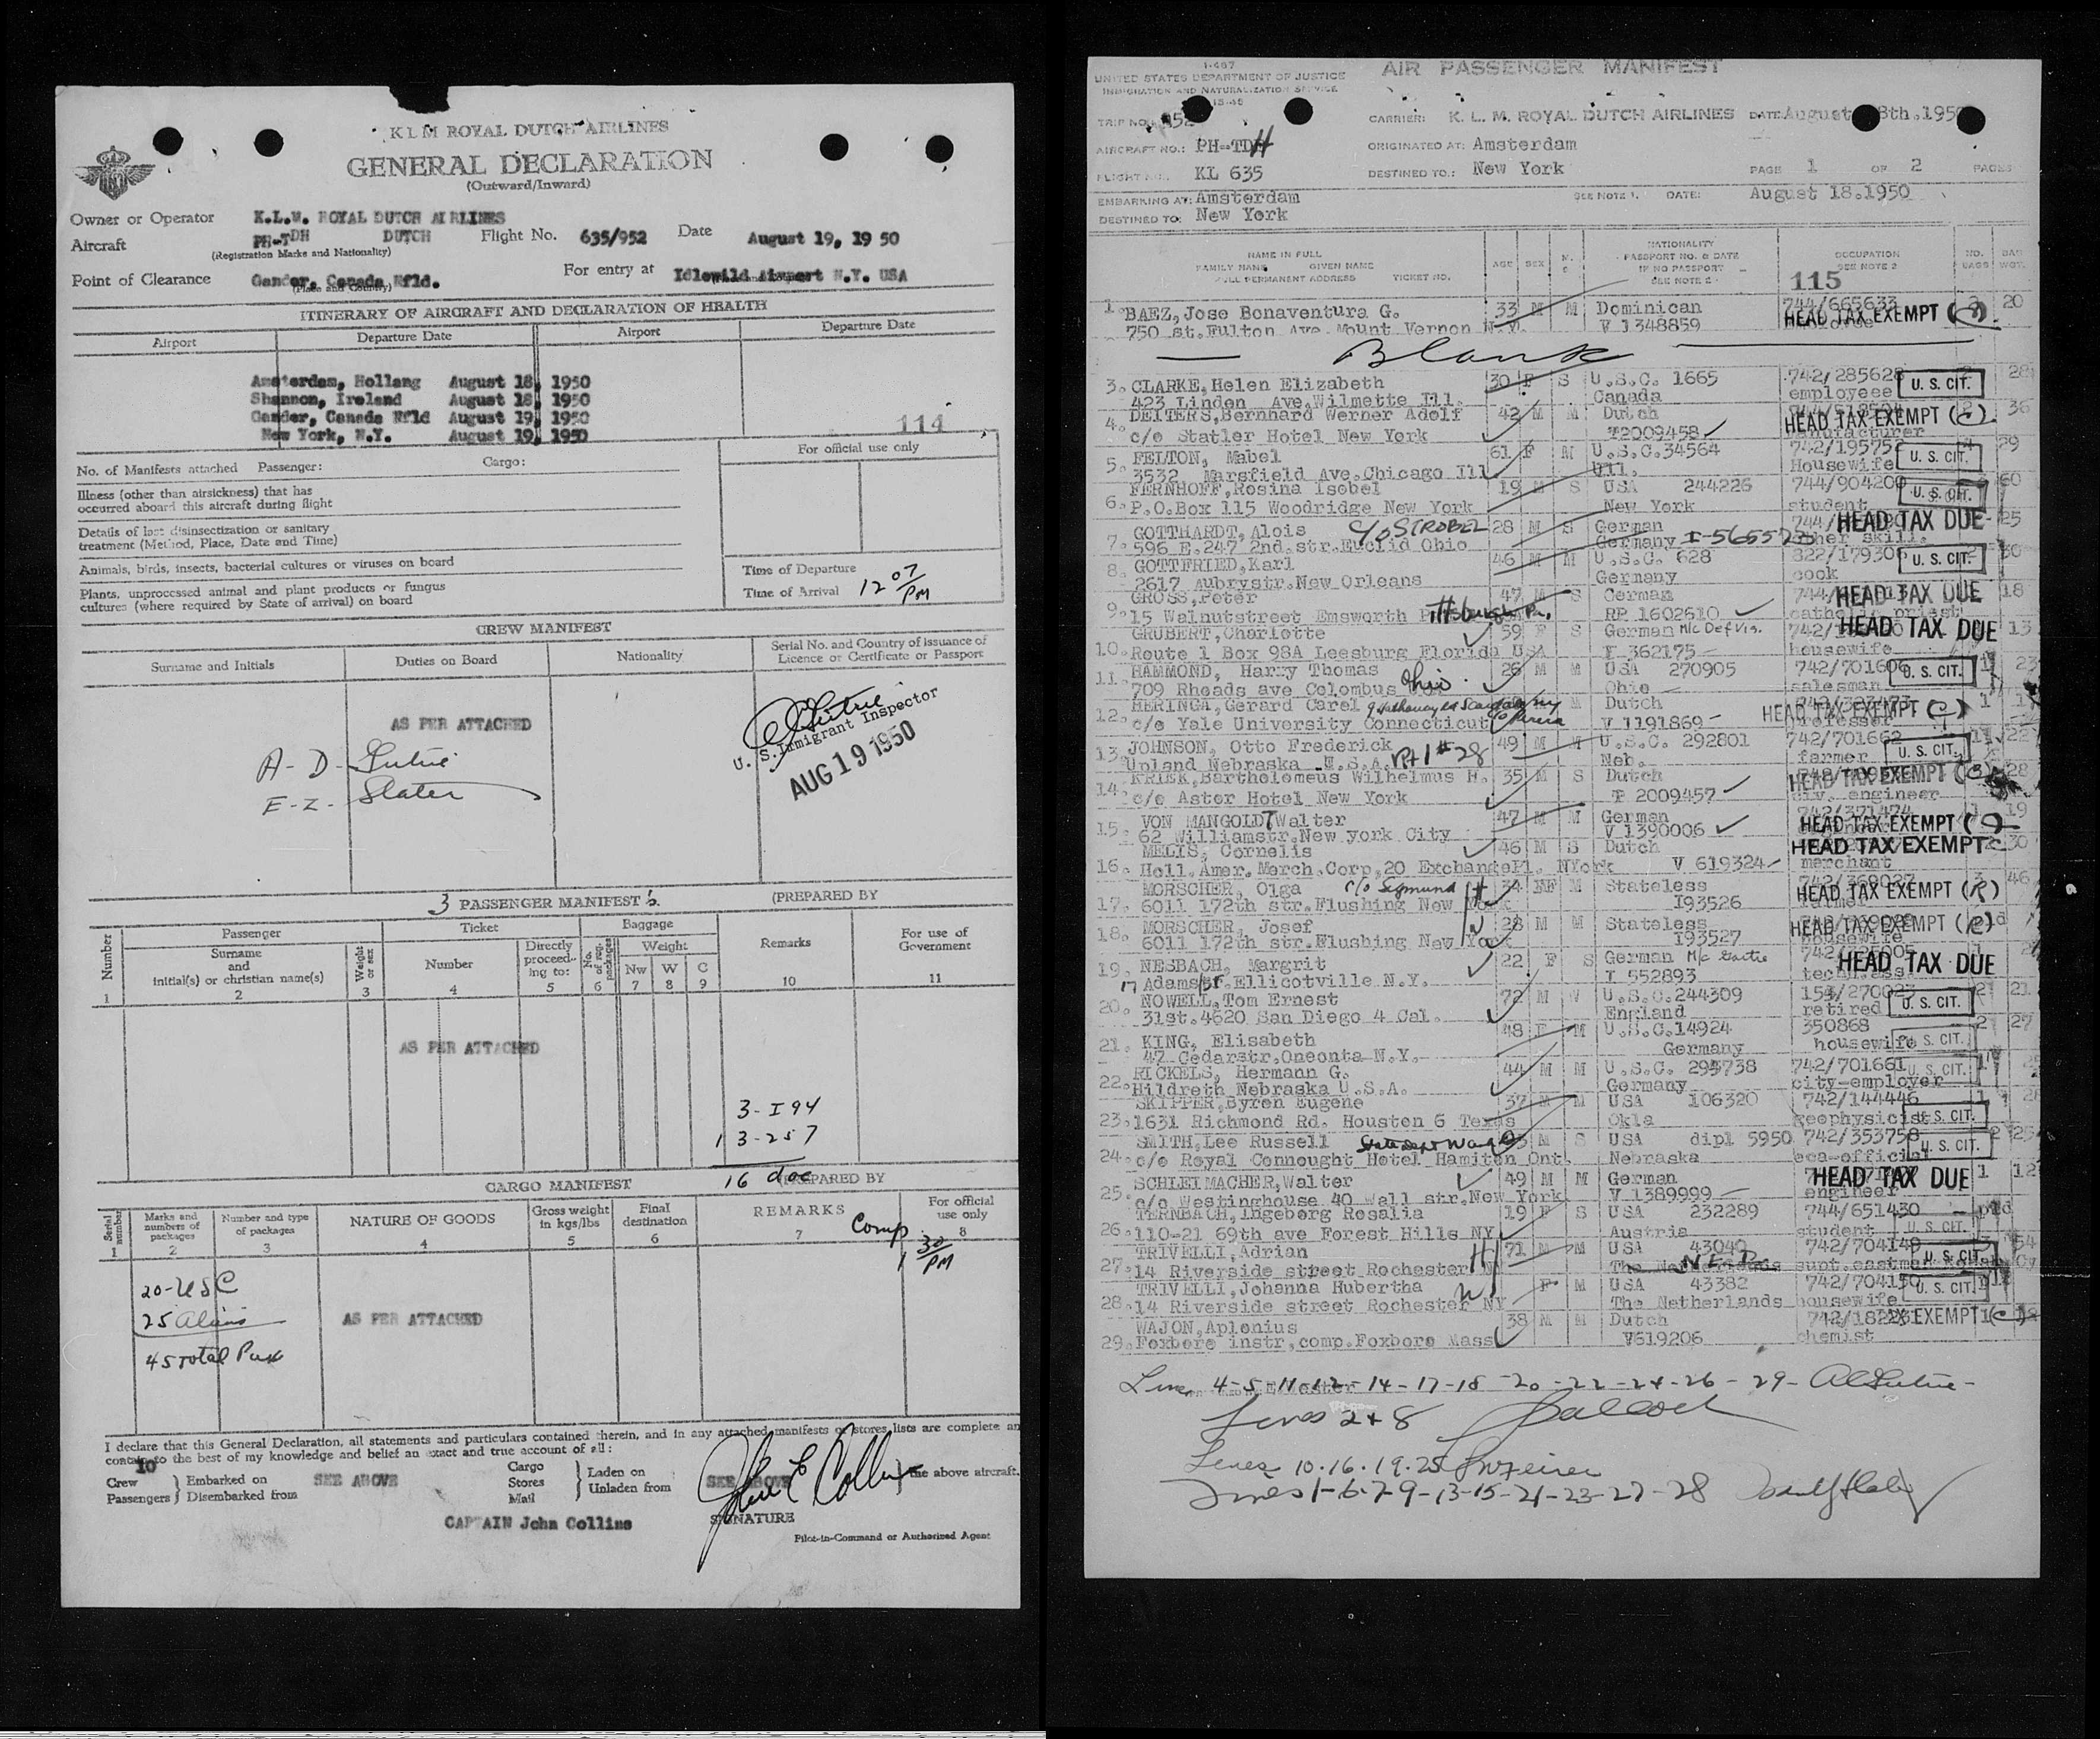 K L M ROYAL DUTCH AIRLINES
GENERAL DECLARATION
(Outward/Inward)
Owner or Operator K.L.M. ROYAL DUTCH AIRLINES
Aircraft PH-TDH DUTCH Flight No. 635/952 Date August 19, 19 50
(Registration Marks and Nationality)
Point of Clearance Gander, Canada Nfld. For entry at Idlewild Airport N.Y. USA
(Place and Country)
ITINERARY OF AIRCRAFT AND DECLARATION OF HEALTH
Airport Departure Date Airport Departure Date
Amsterdam, Hollang August 18, 1950
Shannon, Ireland August 18, 1950
Gander, Canada Nfld August 19, 1950
New York, N.Y. August 19, 1950
114
No. of Manifests attached Passenger: Cargo: For official use only
Illness (other than airsickness) that has
occurred aboard this aircraft during flight
Details of last disinsectization or sanitary
treatment (Method, Place, Date and Time)
Animals, birds, insects, bacterial cultures or viruses on board
Plants, unprocessed animal and plant products or fungus
cultures (where required by State of arrival) on board
Time of Departure
Time of Arrival 12 07 PM
CREW MANIFEST
Surname and Initials Duties on Board Nationality Serial No. and Country of Issuance of
Licence or Certificate or Passport
AS PER ATTACHED
A - D -
E - Z - Slater
U. S. Immigrant Inspector
AUG 19 1950
3 PASSENGER MANIFEST (PREPARED BY
Number Passenger Ticket Baggage Remarks For use of
Government
Surname
and
initial(s) or christian name(s) Weight or sex Number Directly proceeding to: No. of reg. packages Weight
Nw W C
1 2 3 4 5 6 7 8 9 10 11
AS PER ATTACHED
3 - I 94
13 - 257
16 doc
CARGO MANIFEST (PREPARED BY
Serial number Marks and numbers of packages Number and type of packages NATURE OF GOODS Gross weight in kgs/lbs Final destination REMARKS For official use only
1 2 3 4 5 6 7 8
Comp 1 30 PM
20 - USC
25 Aliens
45 Total Pax
AS PER ATTACHED
I declare that this General Declaration, all statements and particulars contained therein, and in any attached manifests or stores lists are complete an
contain to the best of my knowledge and belief an exact and true account of all:
10
Crew Passengers Embarked on Disembarked from SEE ABOVE Cargo Stores Mail Laden on Unladen from SEE ABOVE the above aircraft.
CAPTAIN John Collins
SIGNATURE
Pilot-in-Command or Authorized Agent
I-467
UNITED STATES DEPARTMENT OF JUSTICE
IMMIGRATION AND NATURALIZATION SERVICE
AIR PASSENGER MANIFEST
TRIP NO. 952 CARRIER: K. L. M. ROYAL DUTCH AIRLINES DATE August 18th.1950
AIRCRAFT NO.: PH-TDH ORIGINATED AT: Amsterdam
FLIGHT NO.: KL 635 DESTINED TO.: New York PAGE 1 OF 2 PAGES
EMBARKING AT: Amsterdam SEE NOTE 1. DATE: August 18.1950
DESTINED TO: New York
NAME IN FULL
FAMILY NAME GIVEN NAME
FULL PERMANENT ADDRESS TICKET NO. AGE SEX NATIONALITY
PASSPORT NO. & DATE
IF NO PASSPORT
SEE NOTE 2 OCCUPATION
SEE NOTE 2 NO. BAGS BAG WGT.
115
1. BAEZ, Jose Bonaventura G. 33 M M Dominican 744/665633 20
750 st.Fulton Ave Mount Vernon N.Y. V 1348859 HEAD TAX EXEMPT
Blank
3. CLARKE, Helen Elizabeth 30 F S U.S.C. 1665 742/285628 28
423 Linden Ave.Wilmette Ill. Canada employeee U. S. CIT.
4. DEITERS, Bernhard Werner Adolf 42 M M Dutch 36
c/o Statler Hotel New York T2009458 manufacturer HEAD TAX EXEMPT (C)
5. FELTON, Mabel 61 F M U.S.C.34564 742/195752 29
3532 Marsfield Ave.Chicago Ill Ull. Housewife U. S. CIT.
6. FERNHOFF, Rosina Isobel 19 M S USA 244226 744/904200 60
P.O.Box 115 Woodridge New York New York student U. S. CIT.
7. GOTTHARDT, Alois c/o STROBEL 28 M S German 25
596 E.247 2nd.str.Euclid Ohio Germany HEAD TAX DUE
8. GOTTFRIED, Karl 46 M M U.S.C. 628 822/179306 30
2617 Aubrystr.New Orleans Germany cook U. S. CIT.
9. GROSS, Peter 47 M S German 18
15 Walnutstreet Emsworth Pittsburgh Pa. RP 1602610 catholic priest HEAD TAX DUE
10. GRUBERT, Charlotte 59 F S German 13
Route 1 Box 98A Leesburg Florida USA T 362175 housewife HEAD TAX DUE
11. HAMMOND, Harry Thomas 26 M M USA 270905 742/701606 1 23
709 Rhoads ave Colombus Ohio Ohio salesman U. S. CIT.
12. HERINGA, Gerard Carel M Dutch 1
c/o Yale University Connecticut V 1191869 professor HEAD TAX EXEMPT (C)
13. JOHNSON, Otto Frederick 49 M M U.S.C. 292801 742/701662 1 22
Upland Nebraska U.S.A. Neb. farmer U. S. CIT.
14. KRIEK, Bartholomeus Wilhelmus H. 35 M S Dutch 28
c/o Astor Hotel New York T 2009457 civ. engineer HEAD TAX EXEMPT
15. VON MANGOLDT Walter 47 M M German 742/371474 1 19
62 Williamstr.New york City V 1390006 HEAD TAX EXEMPT
16. MELIS, Cornelis 46 M S Dutch 30
Holl.Amer.Merch.Corp.20 ExchangePl. NYork V 619324 merchant HEAD TAX EXEMPT
17. MORSCHER, Olga c/o Sigmund 34 FF M Stateless 742/369027 3 46
6011 172th str.Flushing New York I93526 HEAD TAX EXEMPT (R)
18. MORSCHER, Josef 28 M M Stateless
6011 172th str.Flushing New York I93527 housewife HEAD TAX EXEMPT
19. NESBACH, Margrit 22 F S German
17 Adams str.Ellicotville N.Y. T 552893 HEAD TAX DUE
20. NOWELL, Tom Ernest 72 M W U.S.C.244309 154/270023 2 21
31st.4620 San Diego 4 Cal. England retired U. S. CIT.
21. KING, Elisabeth 48 F M U.S.C.14924 350868 2 27
47 Cedarstr.Oneonta N.Y. Germany housewife U. S. CIT.
22. RICKELS, Hermann G. 44 M M U.S.C. 294738 742/701661 1
Hildreth Nebraska U.S.A. Germany city-employer U. S. CIT.
23. SKIPPER, Byren Eugene 37 M M USA 106320 742/144446 1
1631 Richmond Rd. Houston 6 Texas Okla geophysicist U. S. CIT.
24. SMITH, Lee Russell M S USA dipl 5950 742/353758 2 25
c/o Royal Connought Hotel Hamiton Ont. Nebraska eca-official U. S. CIT.
25. SCHLEIMACHER, Walter 49 M M German 1 12
c/o Westinghouse 40 wall str.New York V 1389999 engineer HEAD TAX DUE
26. TERNBACH, Ingeborg Rosalia 19 F S USA 232289 744/651430
110-21 69th ave Forest Hills NY Austria student U. S. CIT.
27. TRIVELLI, Adrian H 71 M M USA 43040 742/704149 3 54
14 Riverside street Rochester NY The Netherlands supt.eastman kodak U. S. CIT.
28. TRIVELLI, Johanna Hubertha W F M USA 43382 742/704150
14 Riverside street Rochester NY The Netherlands housewife U. S. CIT.
29. WAJON, Aplonius 38 M M Dutch TAX EXEMPT 1 18
Foxboro instr,comp.Foxboro Mass V619206 chemist
Lines 4-5-11-12-14-17-18-20-22-24-26-29-
Lines 2 + 8
Lines 10.16.19.25
Lines 1-6-7-9-13-15-21-23-27-28